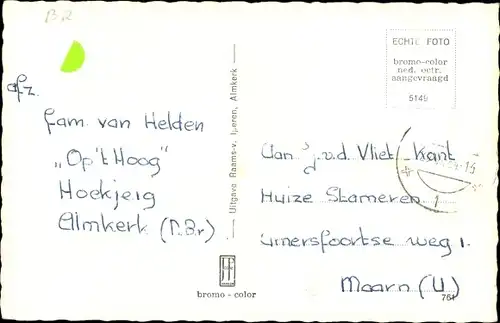 B.R
afz.
Fam. van Helden
„Op 't Hoog"
Hoekjeig
Almkerk (N.Br)
Uitgave Raams-v. Iperen, Almkerk
ECHTE FOTO
bromo-color
ned. octr.
aangevraagd
5149
Aan J.v.d. Vliet - Kant
Huize Stameren
Amersfoortse weg 1.
Maarn (U)
bromo - color
761